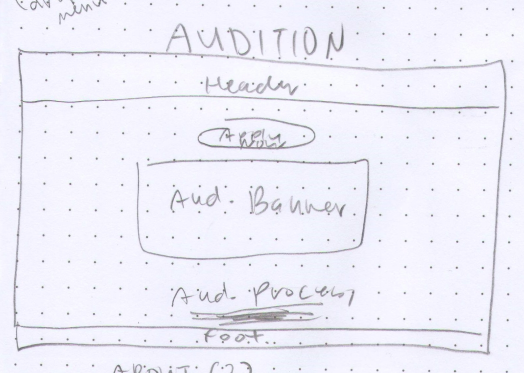 menu
AUDITION
Header
Apply
Aud. Banner
Aud. Process
Foot.
ABOUT (2)